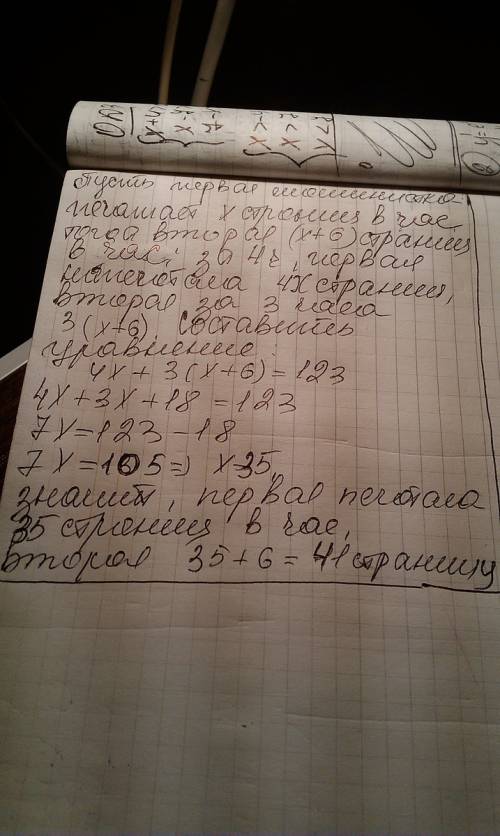 Пусть первая машинистка
печатает x страниц в час
тогда вторая (x+6) страниц
в час; за 4ч, первая
напечатала 4x страниц,
вторая за 3 часа
3(x+6) составить
уравнение:
4x + 3(x+6) = 123
4x+3x+18 = 123
7x=123-18
7x=105=) x=35,
значит, первая печатала
35 страниц в час,
вторая 35+6 = 41 страницу